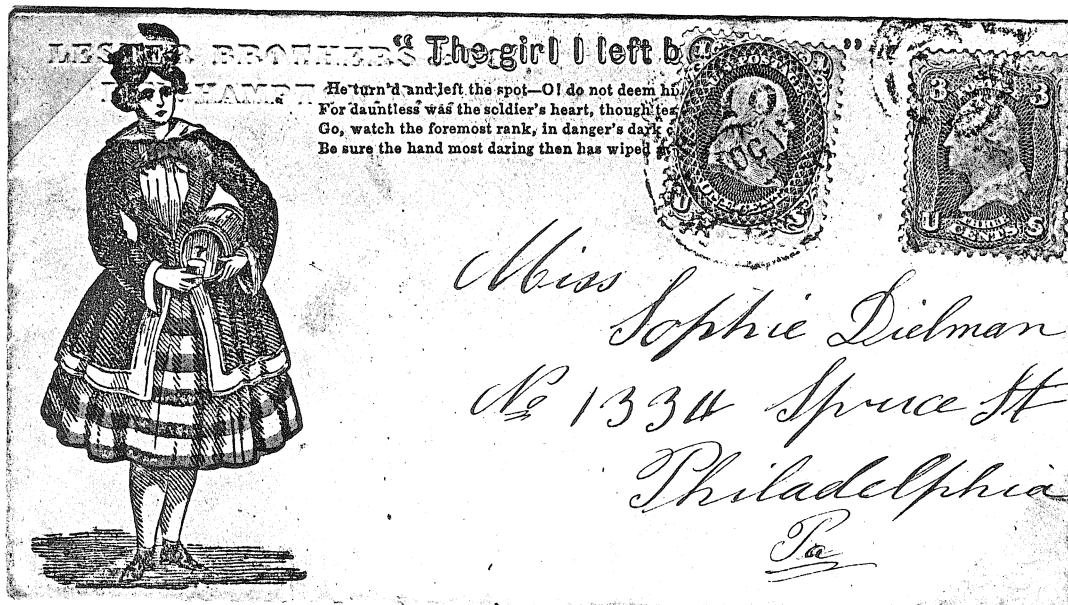 LESTER BROTHERS
“The girl I left b ”
He turn’d and left the spot—O! do not deem hi
For dauntless was the soldier’s heart, though tea
Go, watch the foremost rank, in danger’s dark c
Be sure the hand most daring then has wiped a
POSTAGE
U S
3 CENTS 3
U THREE S
CENTS
Miss
Sophie Dielman
No 1334 Spruce St
Philadelphia
Pa